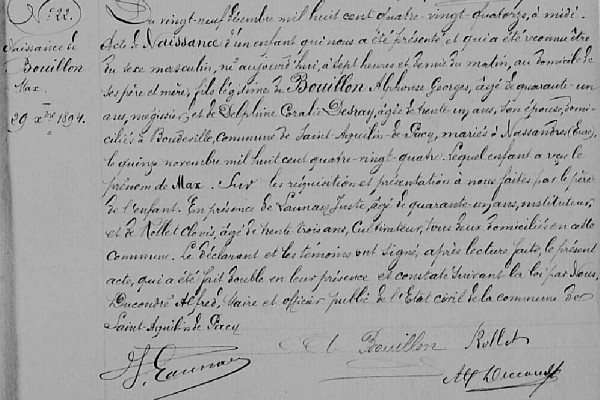 N° 22.
Naissance de
Bouillon
Max
29 Xbre 1894.
Du vingt-neuf décembre mil huit cent quatre-vingt-quatorze, à midi.
Acte de Naissance d'un enfant qui nous a été présenté et qui a été reconnu être
du sexe masculin, né aujourd'hui, à sept heures et demie du matin, au domicile de
ses père et mère, fils légitime de Bouillon Alphonse Georges, âgé de quarante-un
ans, mégissier, et de Delphine Coralie Desray, âgée de trente-un ans, son épouse, domi-
ciliés à Boudeville, commune de Saint-Aquilin-de-Pacy, mariés à Nassandres (Eure),
le quinze novembre mil huit cent quatre-vingt-quatre. Lequel enfant a reçu le
prénom de Max. Sur les réquisition et présentation à nous faites par le père
de l'enfant. En présence de Launay Juste, âgé de quarante-un ans, instituteur,
et de Rollet Clovis, âgé de trente trois ans, Cultivateur, tous deux domiciliés en cette
commune. Le déclarant et les témoins ont signé, après lecture faite, le présent
acte, qui a été fait double en leur présence et constaté suivant la loi par Nous,
Ducoudré Alfred, Maire et officier public de l'Etat civil de la commune de
Saint Aquilin de Pacy
J. Launay
A Bouillon
Rollet
Alf Ducoudré